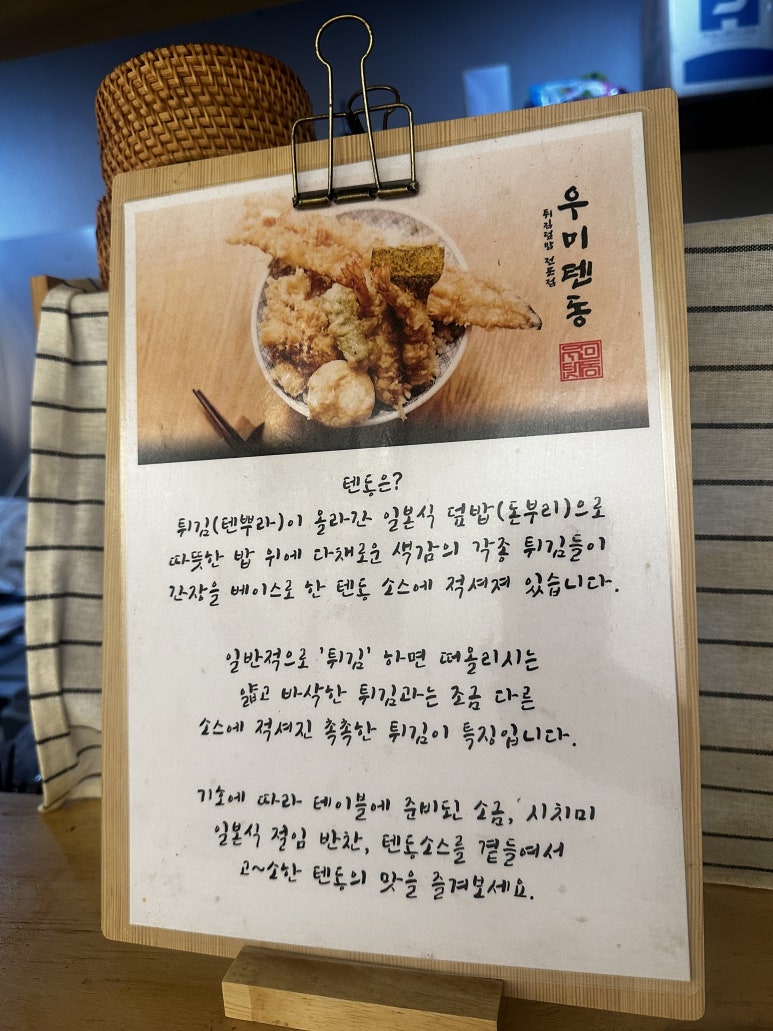 우미텐동
튀김덮밥 전문점
텐동은?
튀김(텐뿌라)이 올라간 일본식 덮밥(돈부리)으로
따뜻한 밥 위에 다채로운 색감의 각종 튀김들이
간장을 베이스로 한 텐동 소스에 적셔져 있습니다.
일반적으로 '튀김' 하면 떠올리시는
얇고 바삭한 튀김과는 조금 다른
소스에 적셔진 촉촉한 튀김이 특징입니다.
기호에 따라 테이블에 준비된 소금, 시치미
일본식 절임 반찬, 텐동소스를 곁들여서
고~소한 텐동의 맛을 즐겨보세요.